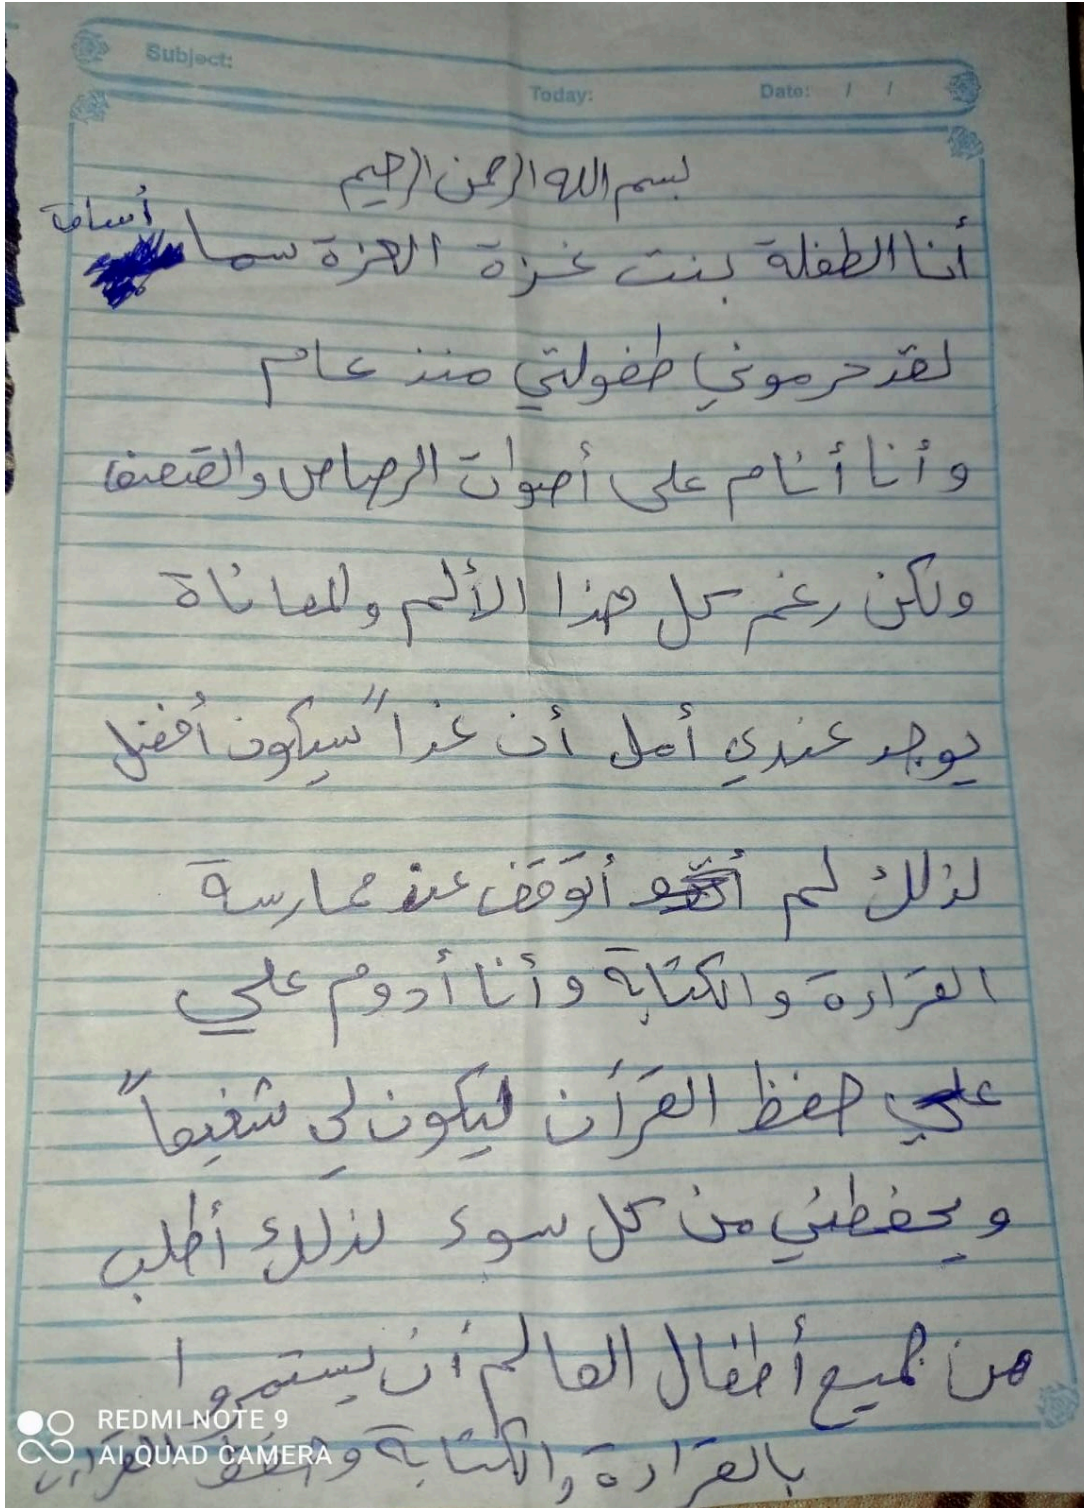 Subject:
Today:
Date: / /
بسم الله الرحمن الرحيم
أنا الطفلة بنت غزة العزة سما أسامة
لقد حرموني طفولتي منذ عام
وأنا أنام على أصوات الرصاص والقصف
ولكن رغم كل هذا الألم والمعاناة
يوجد عندي أمل أن غداً سيكون أفضل
لذلك لم أتوقف عن ممارسة
القراءة والكتابة وأنا أدوم علي
علي حفظ القرآن ليكون لي شفيعاً
ويحفظني من كل سوء لذلك أطلب
من جميع أطفال العالم أن يستمروا
بالقراءة والكتابة وحفظ القرآن
REDMI NOTE 9
AI QUAD CAMERA